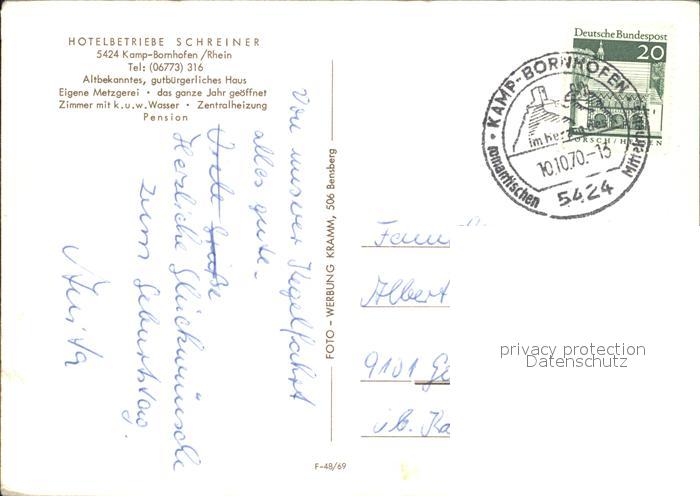 HOTELBETRIEBE SCHREINER
5424 Kamp-Bornhofen/Rhein
Tel: (06773) 316
Altbekanntes, gutbürgerliches Haus
Eigene Metzgerei · das ganze Jahr geöffnet
Zimmer mit k.u.w. Wasser · Zentralheizung
Pension
Von unserer Kegelfahrt
alles gute.
Viele Grüße
Herzliche Glückwünsche
zum Geburtstag.
Anita
FOTO – WERBUNG KRAMM, 506 Bensberg
F-48/69
Deutsche Bundespost
20
LORSCH/HESSEN
· KAMP-BORNHOFEN
im Herzen
10.10.70.-13
romantischen
5424
Fam
Albert
9101 Ge
üb. Ka
privacy protection
Datenschutz